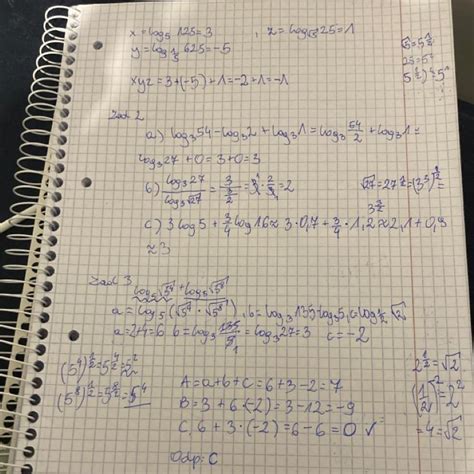 x = log₅ 125 = 3 , z = log 25 = 1
y = log 625 = -5
xyz = 3 + (-5) + 1 = -2 + 1 = -1
Zad 2
a) log₃54 - log₃2 + log₃1 = log₃ 54/2 + log₃1 =
log₃27 + 0 = 3 + 0 = 3
b) log₃27 / log₃√27 = 3/(3/2) = 3 · 2/3 = 2 √27 = 27^½ = (3³)^½
3^(3/2)
c) 3 log 5 + 3/4 log 16 ≈ 3 · 0,7 + 3/4 · 1,2 ≈ 2,1 + 0,9
≈ 3
Zad 3 log₅√5⁴ + log₅√5⁸
a = log₅(√5⁴ · √5⁸), b = log₃135 - log₃5, c = log √2
a = 2+4 = 6 b = log₃ 135/5 = log₃27 = 3 c = -2
(5⁴)^½ = 5^(4/2) = 5²
(5⁸)^½ = 5^(8/2) = 5⁴
A = a+b+c = 6+3-2 = 7
B = 3 + 6·(-2) = 3 - 12 = -9
C. 6 + 3·(-2) = 6 - 6 = 0 ✓
Odp: C
2^½ = √2
= 4 = √2